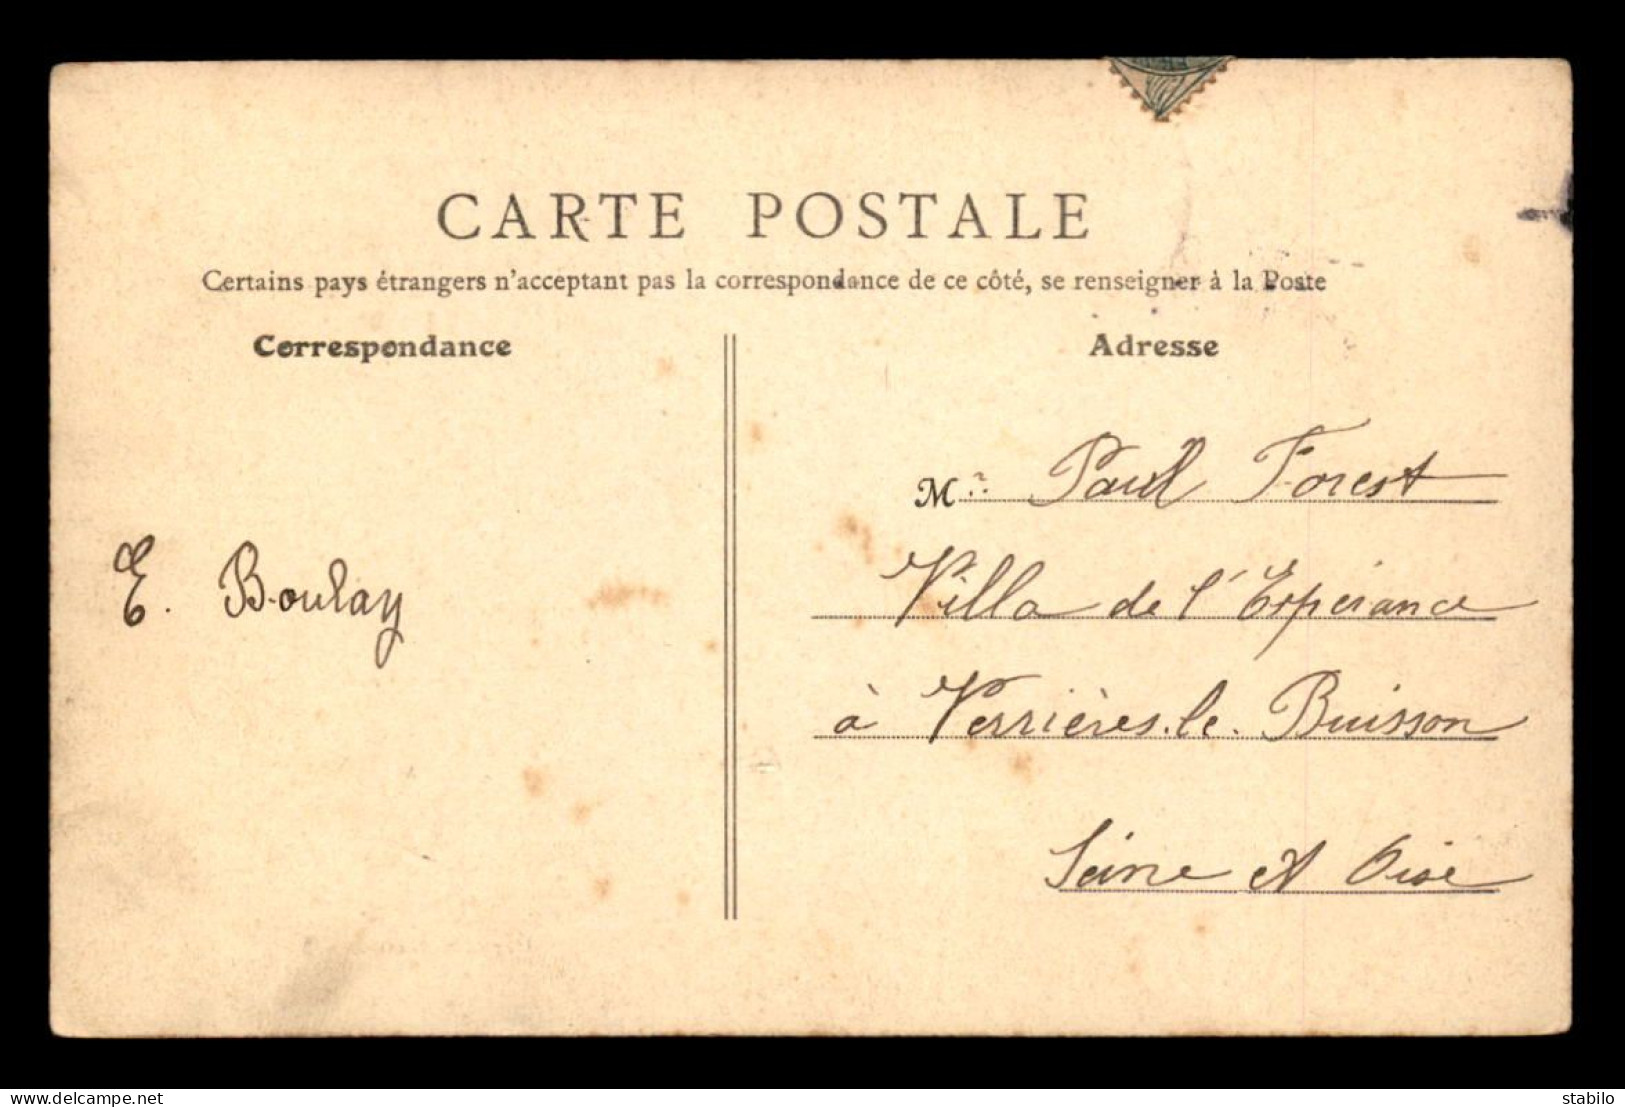 CARTE POSTALE
Certains pays étrangers n'acceptant pas la correspondance de ce côté, se renseigner à la Poste
Correspondance
Adresse
E. Boulay
Mr Paul Forest
Villa de l'Espérance
à Verrières.le.Buisson
Seine et Oise
www.delcampe.net
stabilo